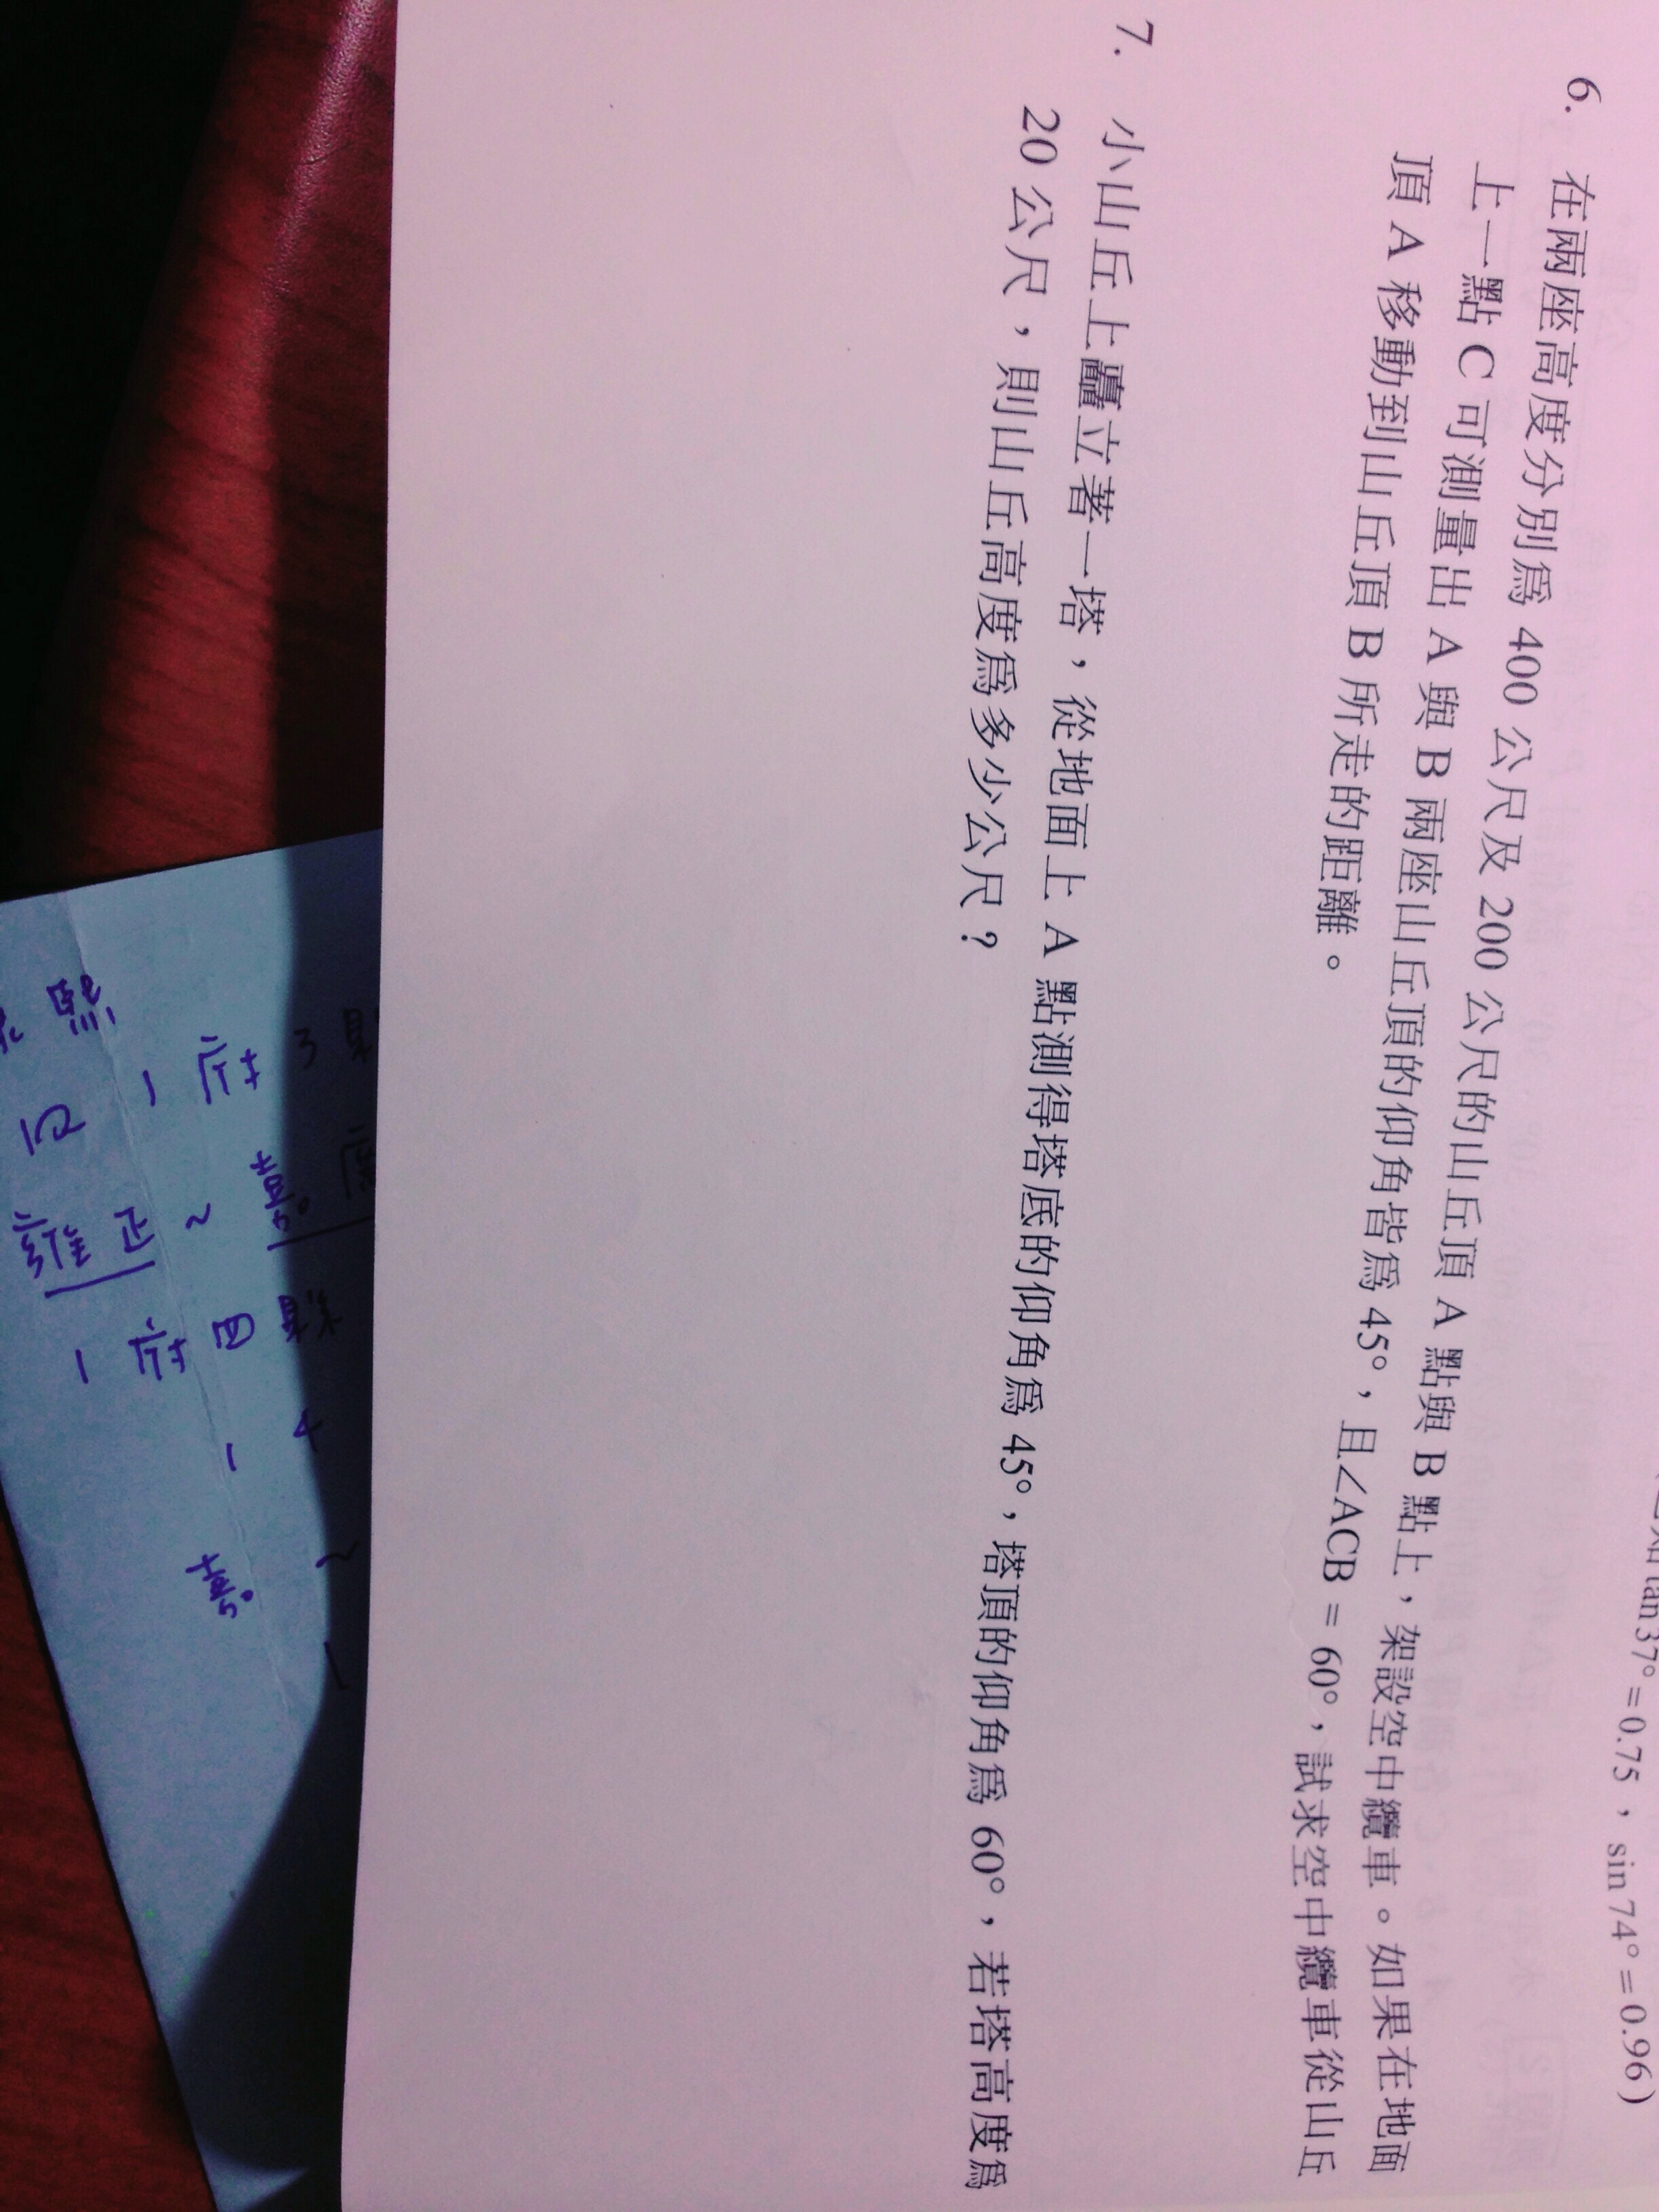 知 tan37° = 0.75，sin74° = 0.96）
6. 在兩座高度分別為 400 公尺及 200 公尺的山丘頂 A 點與 B 點上，架設空中纜車。如果在地面
上一點 C 可測量出 A 與 B 兩座山丘頂的仰角皆為 45°，且∠ACB = 60°，試求空中纜車從山丘
頂 A 移動到山丘頂 B 所走的距離。
7. 小山丘上矗立著一塔，從地面上 A 點測得塔底的仰角為 45°，塔頂的仰角為 60°，若塔高度為
20 公尺，則山丘高度為多少公尺？
熙
1 府 3 縣
雍正 ~ 嘉慶
1 府 四 縣
1 4 ~ 1
嘉